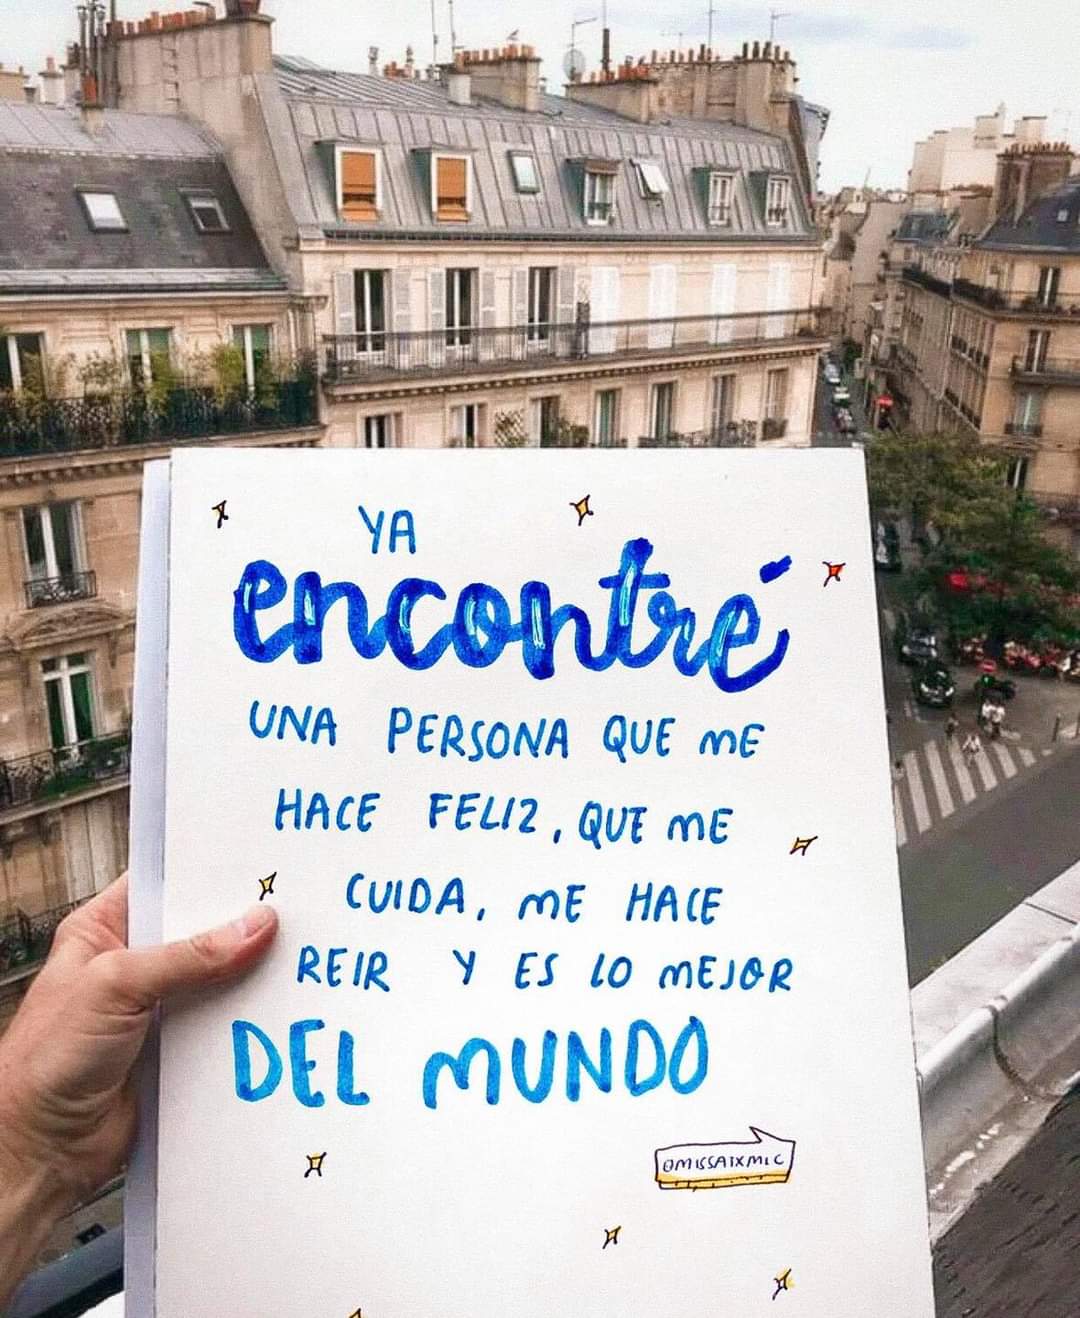 YA
encontré
UNA PERSONA QUE ME
HACE FELIZ, QUE ME
CUIDA, ME HACE
REIR Y ES LO MEJOR
DEL MUNDO
@MISSATXMIC